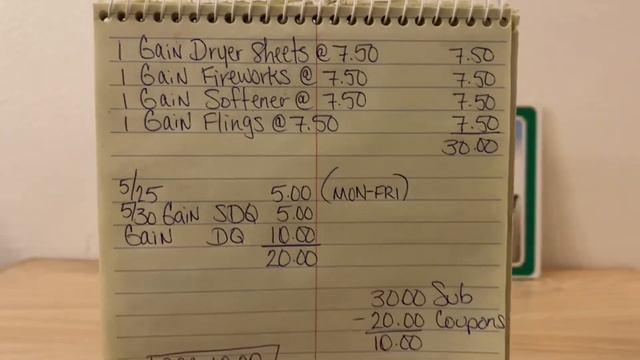 1 Gain Dryer Sheets @ 7.50 7.50
1 Gain Fireworks @ 7.50 7.50
1 Gain Softener @ 7.50 7.50
1 Gain Flings @ 7.50 7.50
30.00
5/25 5.00 (MON-FRI)
5/30 Gain SDQ 5.00
Gain DQ 10.00
20.00
3000 Sub
- 20.00 Coupons
10.00